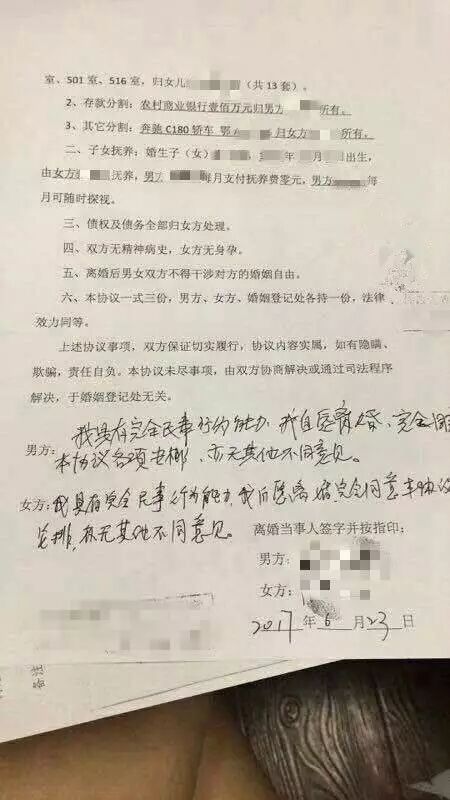 室、501 室、516 室，归女儿（共 13 套）。
2、存款分割：农村商业银行壹佰万元归男方所有。
3、其它分割：奔驰 C180 轿车 鄂归女方所有。
二、子女抚养：婚生子（女）年月出生，
由女方抚养，男方每月支付抚养费零元，男方每
月可随时探视。
三、债权及债务全部归女方处理。
四、双方无精神病史，女方无身孕。
五、离婚后男女双方不得干涉对方的婚姻自由。
六、本协议一式三份，男方、女方、婚姻登记处各持一份，法律
效力同等。
上述协议事项，双方保证切实履行，协议内容实属，如有隐瞒、
欺骗，责任自负。本协议未尽事项，由双方协商解决或通过司法程序
解决，于婚姻登记处无关。
我具有完全民事行为能力，我自愿离婚，完全同
男方：本协议各项安排，亦无其他不同意见。
女方：我具有完全民事行为能力，我自愿离婚，完全同意本协议
安排，亦无其他不同意见。
离婚当事人签字并按指印：
男方：
女方：
2017 年 6 月 23 日
备注